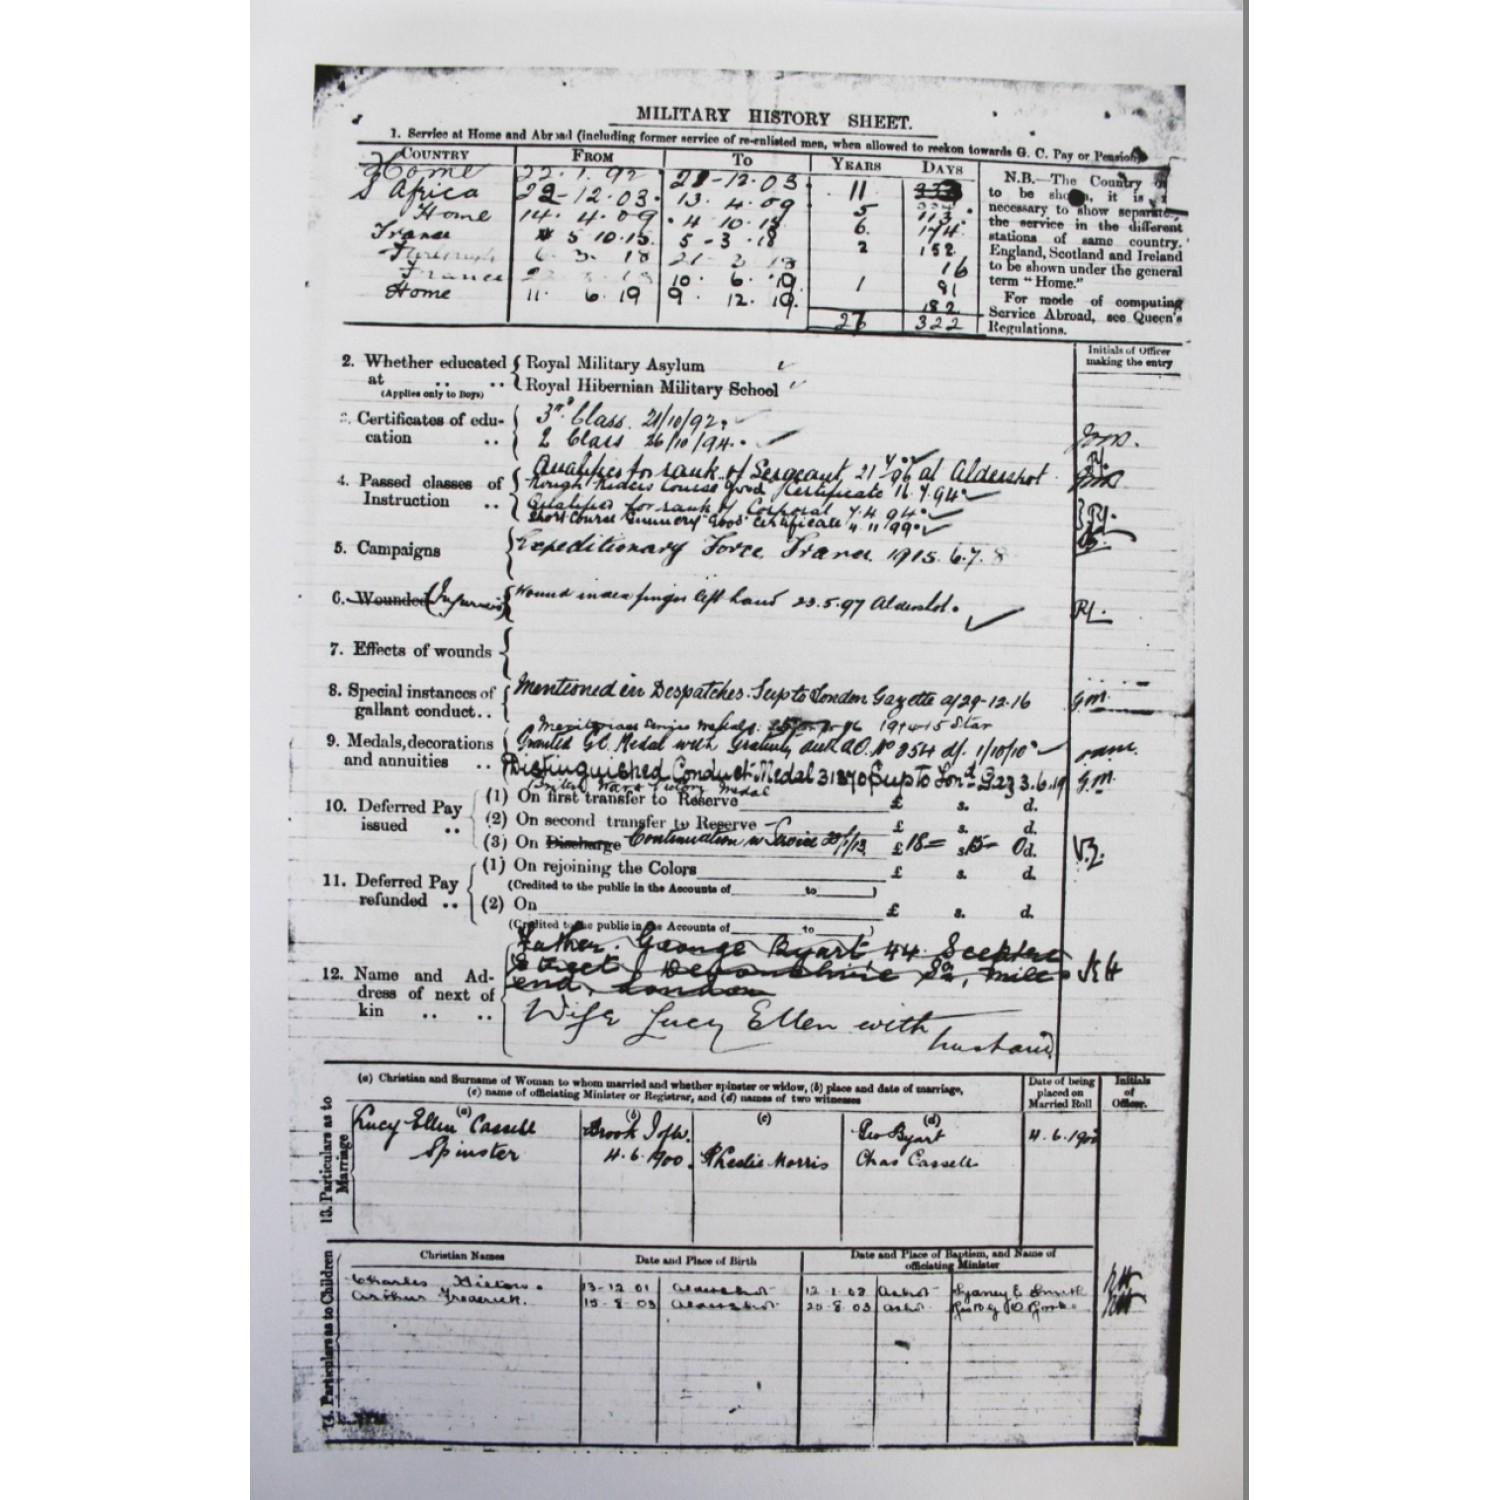 MILITARY HISTORY SHEET.
1. Service at Home and Abroad (including former service of re-enlisted men, when allowed to reckon towards G. C. Pay or Pension)
COUNTRY FROM TO YEARS DAYS
Home 22. 1. 92 21-12-03 11
S Africa 22-12.03. 13. 4.09 5 113
Home 14. 4. 09 4 10. 15 6. 174
France 5 10.15. 5 - 3 - 18 2 152
6. 3. 18 21 3 18 16
France 22 10. 6. 19 1 81
Home 11. 6. 19 9. 12. 19. 182
27 322
N.B.—The Country
to be shown, it is
necessary to show separate
the service in the different
stations of same country.
England, Scotland and Ireland
to be shown under the general
term "Home."
For mode of computing
Service Abroad, see Queen's
Regulations.
Initials of Officer
making the entry
2. Whether educated at .. .. (Applies only to Boys)
Royal Military Asylum
Royal Hibernian Military School
3. Certificates of education ..
3rd Class. 21/10/92.
2 Class 26/10/94.
4. Passed classes of Instruction ..
Qualified for rank of Sergeant 21 96 at Aldershot
Rough Riders Course good Certificate 94
Qualified for rank of Corporal 7.4 94.
Short Course Gunnery "good" Certificate 4. 11/99.
5. Campaigns
Expeditionary Force France 1915. 6.7. 8
6. Wounded (Injuries)
Wound index finger left hand 23.5.97 Aldershot.
7. Effects of wounds
8. Special instances of gallant conduct..
Mentioned in Despatches. Sup to London Gazette d/29-12-16 G.M.
Meritorious Service Medal. 1914-15 Star
9. Medals, decorations and annuities ..
Granted G.C. Medal with Gratuity auth A.O. No 254 d/. 1/10/10
Distinguished Conduct Medal 31870 Sup to Lond. Gaz 3.6.19 G.M.
British War & Victory Medal
10. Deferred Pay issued ..
(1) On first transfer to Reserve £ s. d.
(2) On second transfer to Reserve £ s. d.
(3) On Discharge Continuation in Service £ 18= s. 15- 0d.
11. Deferred Pay refunded ..
(1) On rejoining the Colors £ s. d.
(Credited to the public in the Accounts of to )
(2) On £ s. d.
(Credited to the public in the Accounts of to )
12. Name and Address of next of kin .. ..
Father. George Byart 44 Sceptre
Street Devonshire Sq, Mile
end, London
Wife Lucy Ellen with
husband
13. Particulars as to Marriage
(a) Christian and Surname of Woman to whom married and whether spinster or widow, (b) place and date of marriage,
(c) name of officiating Minister or Registrar, and (d) names of two witnesses
Date of being placed on Married Roll
Initials of Officer.
(a) (b) (c) (d)
Lucy Ellen Cassell Geo Byart 4.6.1900
Spinster 4.6.1900. Morris Chas Cassell
14. Particulars as to Children
Christian Names
Date and Place of Birth
Date and Place of Baptism, and Name of officiating Minister
Charles 13-12 01 Aldershot 12.1.02 Sydney E Smith
Arthur Frederick. 15-8.03 Aldershot 20-8.03